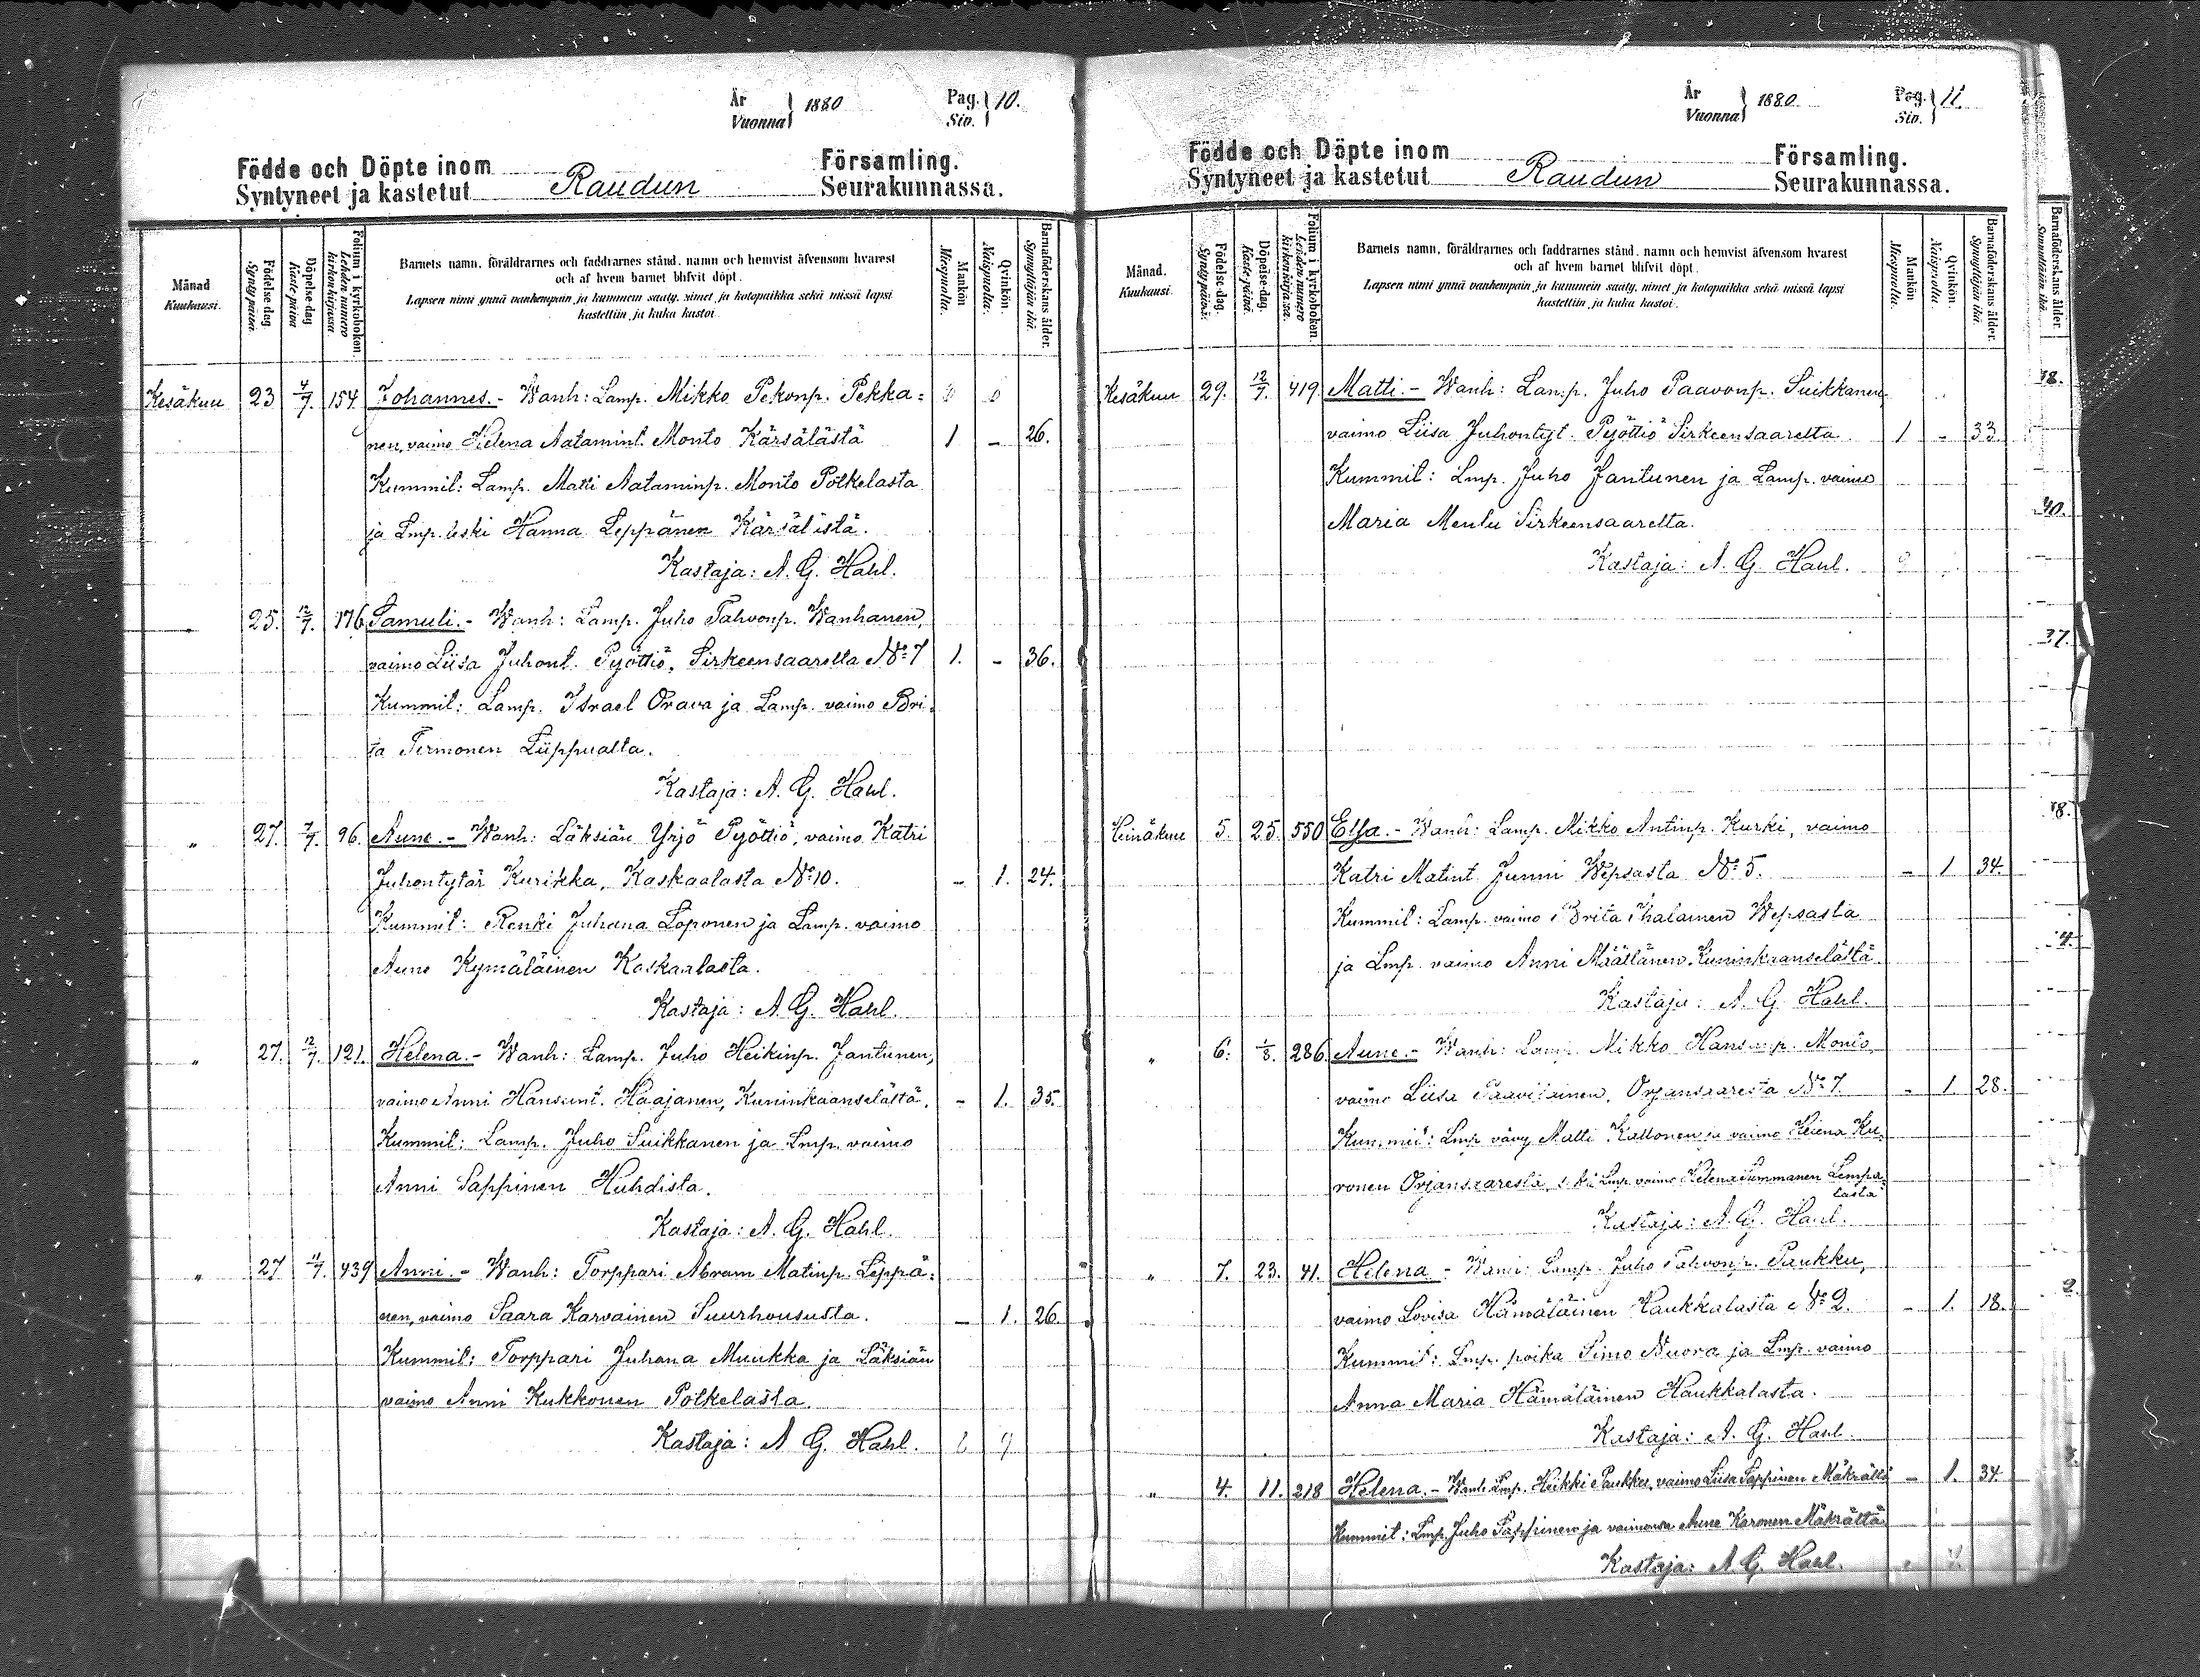 År
Vuonna 1880
Pag.
Siv. 10.
Födde och Döpte inom Församling.
Syntyneet ja kastetut Raudun Seurakunnassa.
Månad Kuukausi.
Födelse-dag Syntypäivä.
Döpelse-dag Kaste-päivä
Folium i kyrkoboken. Lehden numero kirkonkirjassa.
Barnets namn, föräldrarnes och faddrarnes stånd, namn och hemvist äfvensom hvarest
och af hvem barnet blifvit döpt.
Lapsen nimi ynnä vanhempain ja kummein sääty, nimet ja kotopaikka sekä missä lapsi
kastettiin ja kuka kastoi.
Mankön Miespuolia.
Qvinkön. Naispuolia.
Barnaföderskans ålder. Synnyttäjän ikä.
Kesäkuu 23 4/7. 154 Johannes. - Wanh: Lamp. Mikko Pekonp. Pekka=
nen, vaimo Helena Aatamint. Monto Kärsälästä 1 - 26.
Kummit: Lamp. Matti Aataminp. Monto Potkelasta
ja Lmp. leski Hanna Leppänen Kärsälästä.
Kastaja: A. G. Hahl.
" 25. 12/7. 176 Samuli. - Wanh: Lamp. Juho Tahvonp. Wanhanen,
vaimo Liisa Juhont. Pyöttiö, Sirkeensaarelta No 7 1. - 36.
Kummit: Lamp. Israel Orava ja Lamp. vaimo Bri=
ta Termonen Liippualta.
Kastaja: A. G. Hahl.
" 27. 7/7. 96. Aune. - Wanh: Läksiän Yrjö Pyöttiö, vaimo Katri
Juhontytär Kurikka, Kaskaalasta No 10. - 1. 24.
Kummit: Renki Juhana Loponen ja Lamp. vaimo
Aune Kymäläinen Kaskaalasta.
Kastaja: A. G. Hahl.
" 27. 12/7. 121. Helena. - Wanh: Lamp. Juho Heikinp. Jantunen,
vaimo Anni Hansunt. Haajanen, Kuninkaanselästä. - 1. 35.
Kummit: Lamp. Juho Suikkanen ja Lmp. vaimo
Anni Sappinen Huhdista.
Kastaja: A. G. Hahl.
" 27 11/7. 439 Anni. - Wanh: Torppari Abram Matinp. Leppä=
nen, vaimo Saara Karvainen Suurhoususta. - 1. 26.
Kummit: Torppari Juhana Muukka ja Läksiän
vaimo Anni Kukkonen Potkelasta.
Kastaja: A G. Hahl.
År
Vuonna 1880.
Pag.
Siv. 11.
Födde och Döpte inom Församling.
Syntyneet ja kastetut Raudun Seurakunnassa.
Månad. Kuukausi.
Födelse-dag. Syntypäivä.
Döpelse-dag. Kaste-päivä.
Folium i kyrkoboken. Lehden numero kirkonkirjassa.
Barnets namn, föräldrarnes och faddrarnes stånd, namn och hemvist äfvensom hvarest
och af hvem barnet blifvit döpt.
Lapsen nimi ynnä vanhempain ja kummein sääty, nimet ja kotopaikka sekä missä lapsi
kastettiin ja kuka kastoi.
Mankön Miespuolia.
Qvinkön. Naispuolia.
Barnaföderskans ålder. Synnyttäjän ikä.
Kesäkuu 29. 12/7. 419. Matti. - Wanh: Lamp. Juho Paavonp. Suikkanen
vaimo Liisa Juhontyt. Pyöttiö Sirkeensaarelta 1 - 33
Kummit: Lmp. Juho Jantunen ja Lamp. vaimo
Maria Mentu Sirkeensaarelta.
Kastaja: A. G. Hahl.
Heinäkuu 5. 25. 550 Elsa. - Wanh: Lamp. Mikko Antinp. Kurki, vaimo
Katri Matint Junni Wepsasta No 5. - 1 34.
Kummit: Lamp. vaimo Brita Ihalainen Wepsasta
ja Lmp. vaimo Anni Määttänen Kuninkaanselästä.
Kastaja: A. G. Hahl.
" 6. 1/8. 286 Aune. - Wanh: Lamp. Mikko Hansunp. Monto,
vaimo Liisa Paavilainen, Orjansaaresta No 7. - 1. 28.
Kummit: Lmp vävy Matti Kattonen ja vaimo Helena Ku=
ronen Orjansaaresta, Lmp. vaimo Helena Summanen Lempä=
lästä
Kastaja: A. G. Hahl.
" 7. 23. 41. Helena - Wanh: Lamp. Juho Tahvonp. Paukku,
vaimo Lovisa Hämäläinen Haukkalasta No 2. - 1. 18.
Kummit: Lmp. poika Simo Nuora ja Lmp. vaimo
Anna Maria Hämäläinen Haukkalasta.
Kastaja: A. G. Hahl.
" 4. 11. 218 Helena. - Wanh Lmp. Heikki Paukku, vaimo Liisa Sappinen Mäkrältä - 1. 34
Kummit: Lmp. Juho Sappinen ja vaimonsa Aune Karonen Mäkrältä
Kastaja: A G. Hahl.
Barnaföderskans ålder. Synnyttäjän ikä.
18.
40.
37.
18.